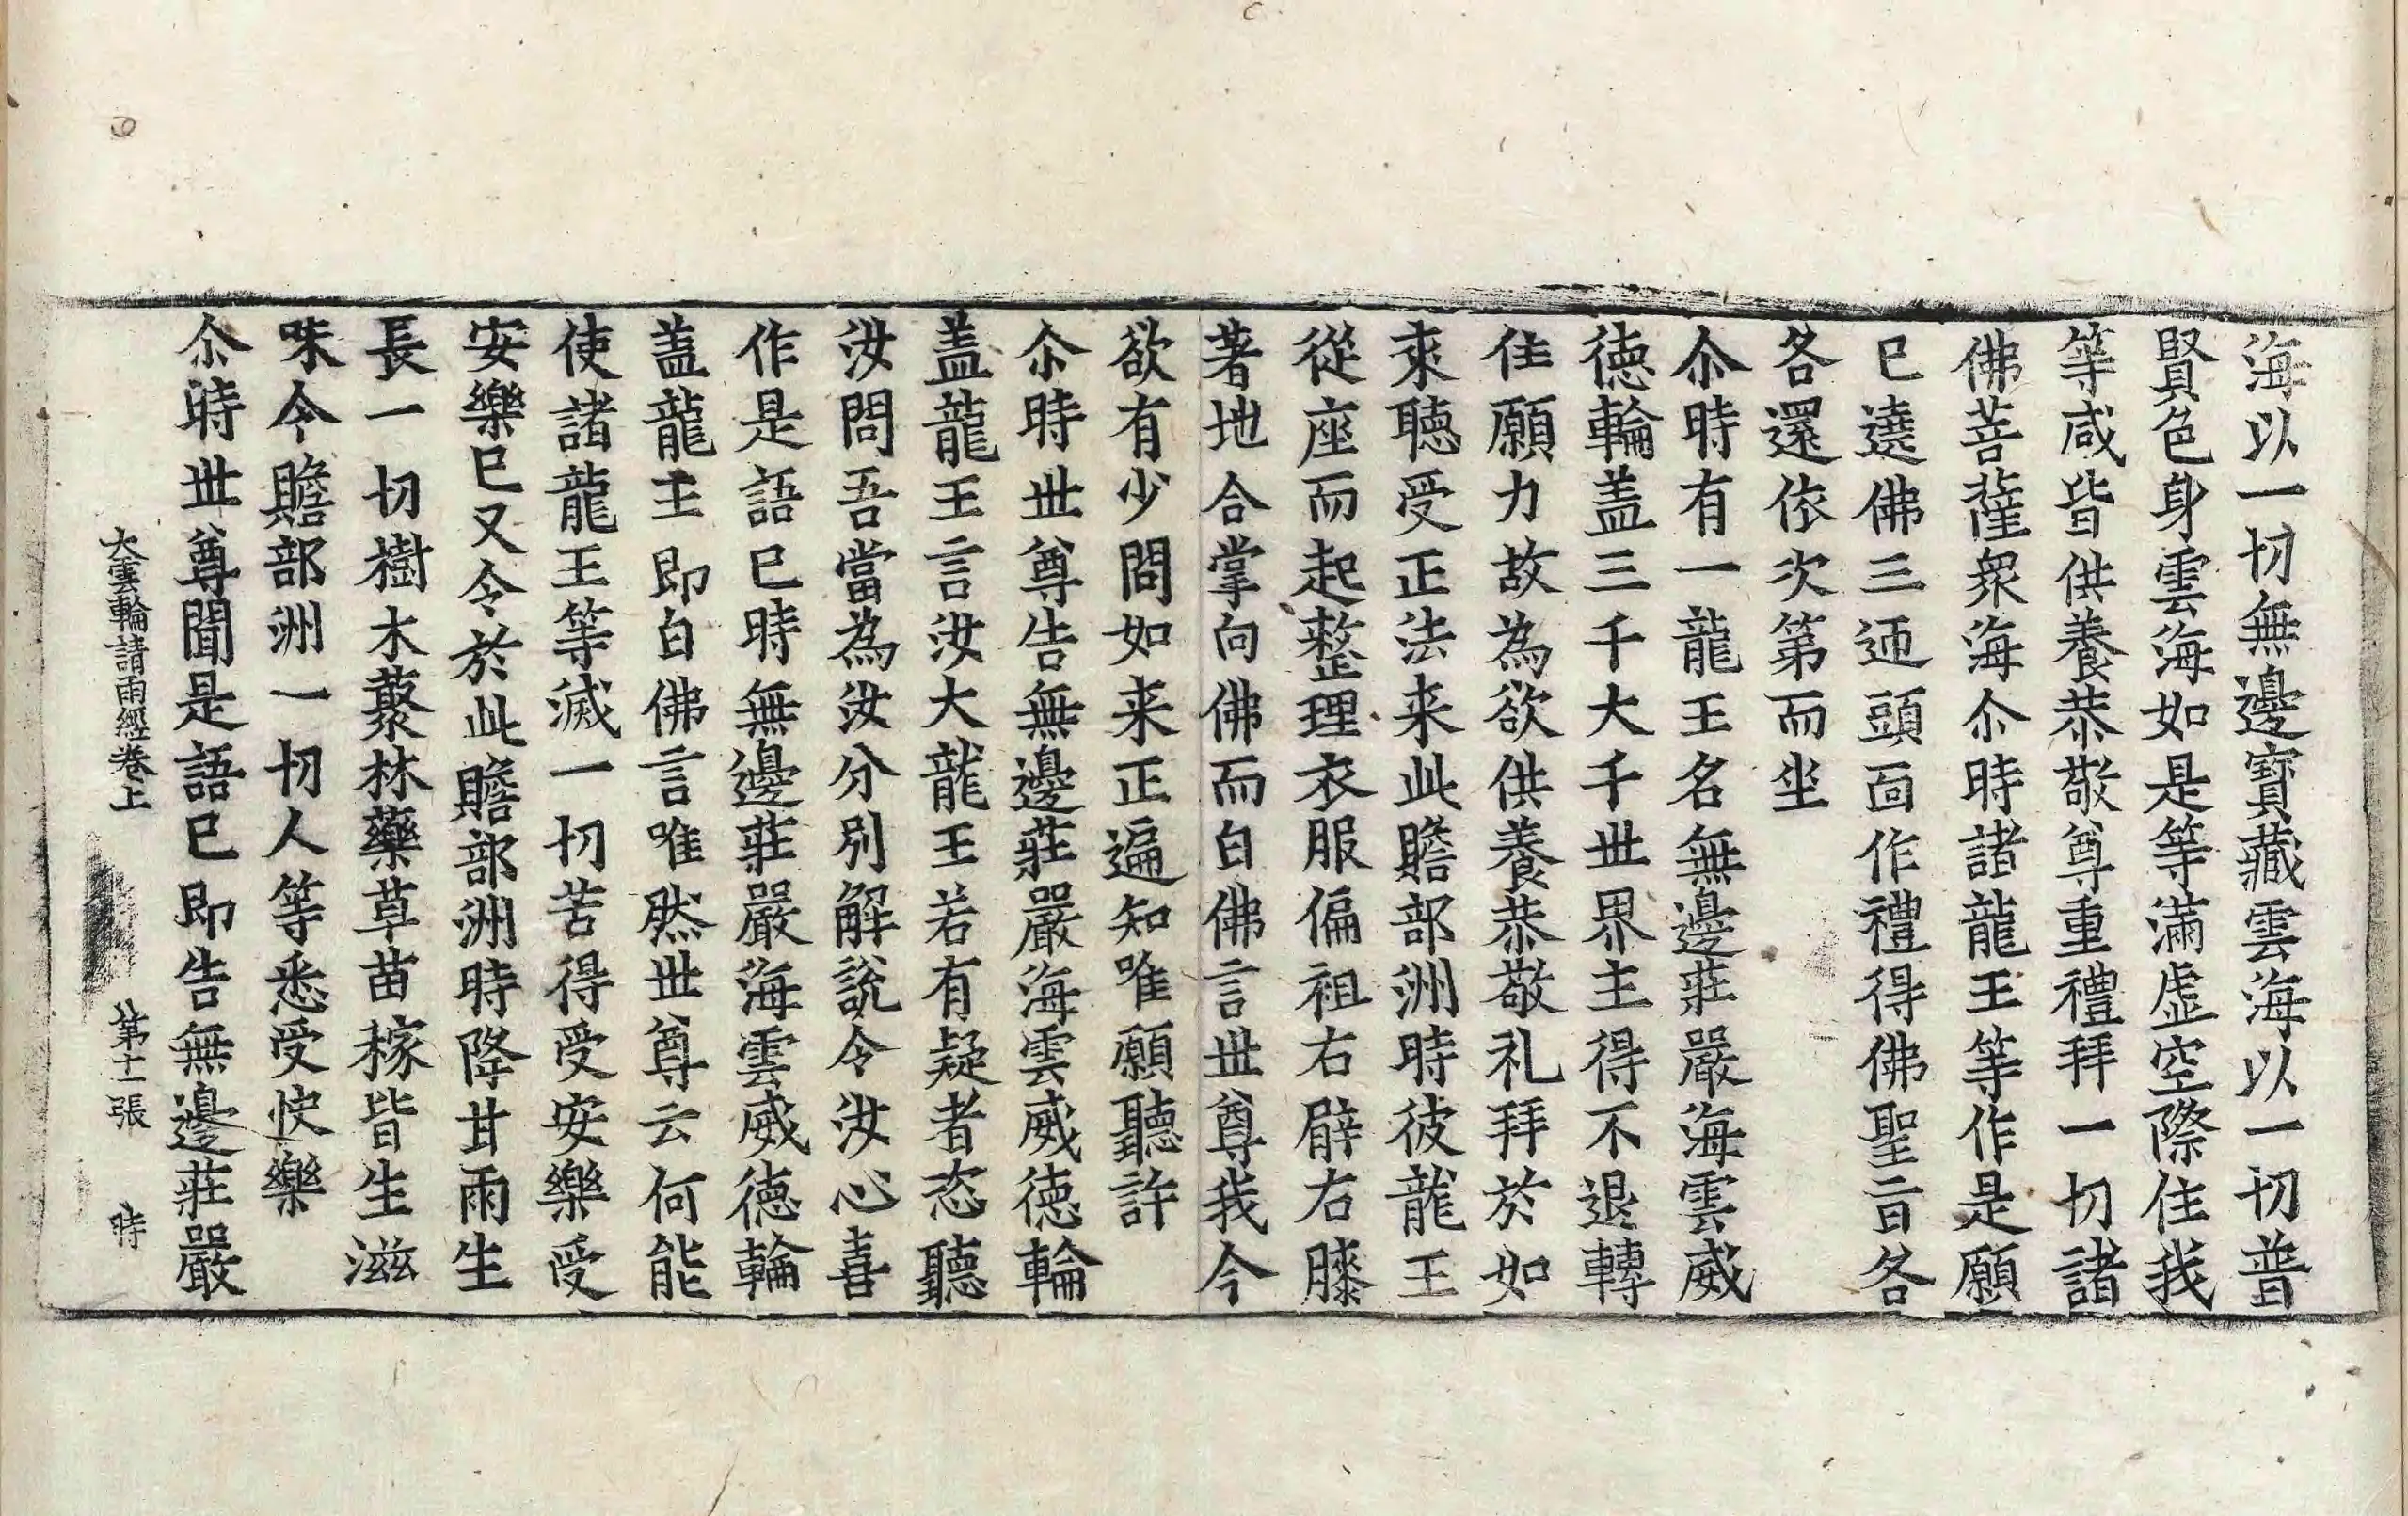 海以一切無邊寶藏雲海以一切普
賢色身雲海如是等滿虛空際住我
等咸皆供養恭敬尊重禮拜一切諸
佛菩薩衆海尒時諸龍王等作是願
已遶佛三迊頭面作禮得佛聖旨各
各還依次第而坐
尒時有一龍王名無邊莊嚴海雲威
德輪盖三千大千世界主得不退轉
住願力故為欲供養恭敬礼拜於如
來聽受正法来此贍部洲時彼龍王
從座而起整理衣服偏袒右臂右膝
著地合掌向佛而白佛言世尊我今
欲有少問如来正遍知唯願聽許
尒時世尊告無邊莊嚴海雲威德輪
盖龍王言汝大龍王若有疑者恣聽
汝問吾當為汝分別解說令汝心喜
作是語已時無邊莊嚴海雲威德輪
盖龍王即白佛言唯然世尊云何能
使諸龍王等滅一切苦得受安樂受
安樂已又令於此贍部洲時降甘雨生
長一切樹木藂林藥草苗稼皆生滋
味令贍部洲一切人等悉受快樂
尒時世尊聞是語已即告無邊莊嚴
大雲輪請雨經卷上 第十一張 時